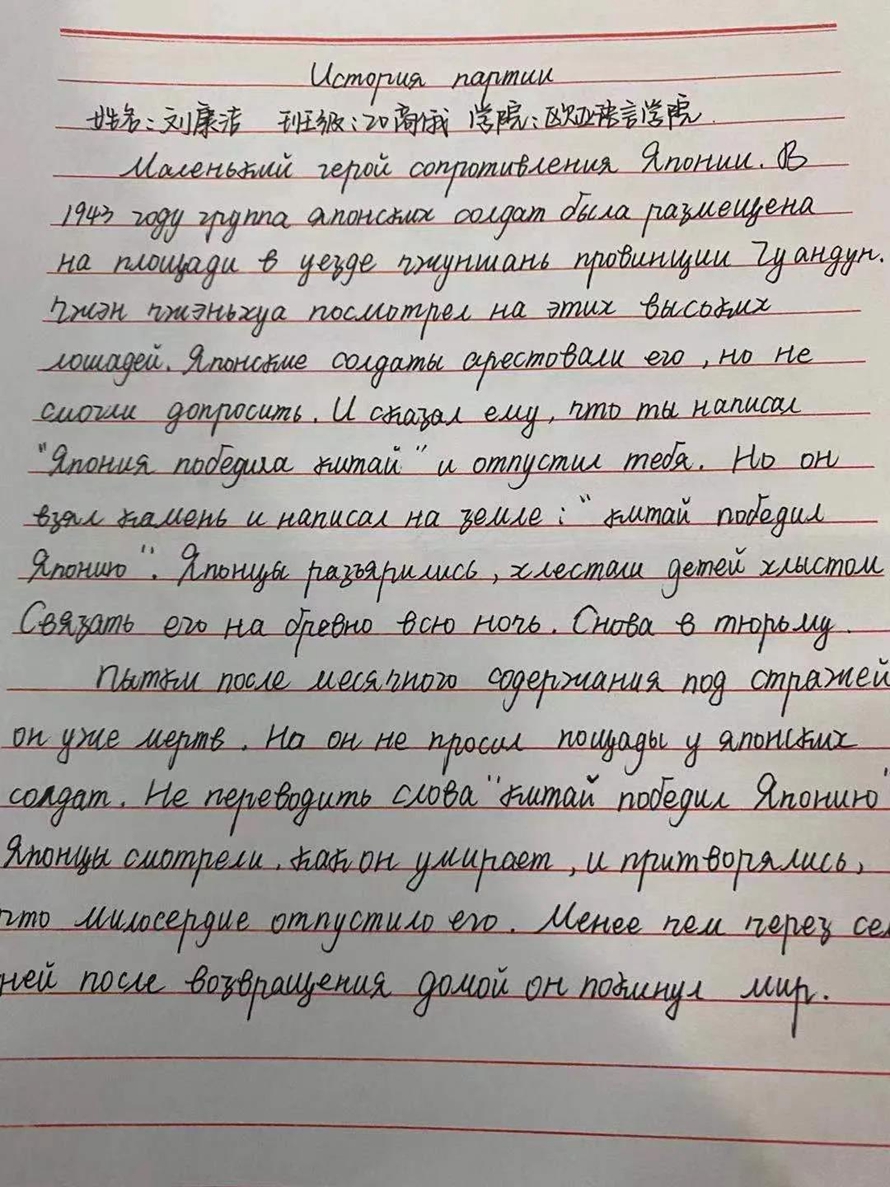 История партии
姓名:刘康洁 班级:20商俄 学院:欧亚语言学院.
Маленький герой сопротивления Японии. В
1943 году группа японских солдат была размещена
на площади в уезде чжуншань провинции Гуандун.
Чжэн чжэньхуа посмотрел на этих высоких
лошадей. Японские солдаты арестовали его, но не
смогли допросить. И сказал ему, что ты написал
"Япония победила китай" и отпустил тебя. Но он
взял камень и написал на земле: "китай победил
Японию". Японцы разъярились, хлестали детей хлыстом
Связать его на бревно всю ночь. Снова в тюрьму.
Пытки после месячного содержания под стражей
он уже мертв. Но он не просил пощады у японских
солдат. Не переводить слова "китай победил Японию"
Японцы смотрели, как он умирает, и притворялись,
что милосердие отпустило его. Менее чем через сем
ней после возвращения домой он покинул мир.